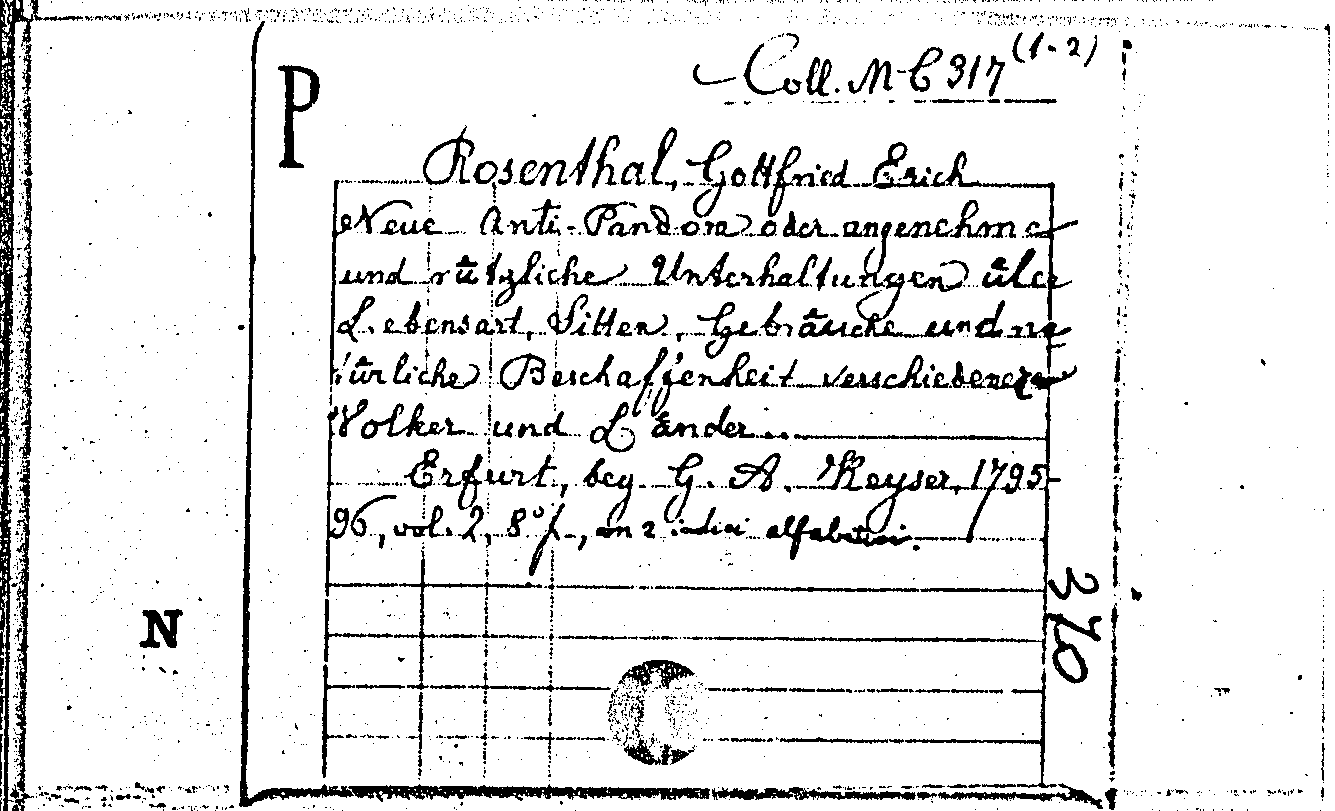 P
Coll. M-C 317 (1-2)
Rosenthal, Gottfried Erich
Neue Anti-Pandora oder angenehme
und nützliche Unterhaltungen über
Lebensart, Sitten, Gebräuche und na
türliche Beschaffenheit verschiedener
Volker und Länder..
Erfurt, bey G. A. Keyser, 1795-
96, vol. 2, 8°, con 2 indici alfabetici.
370
N